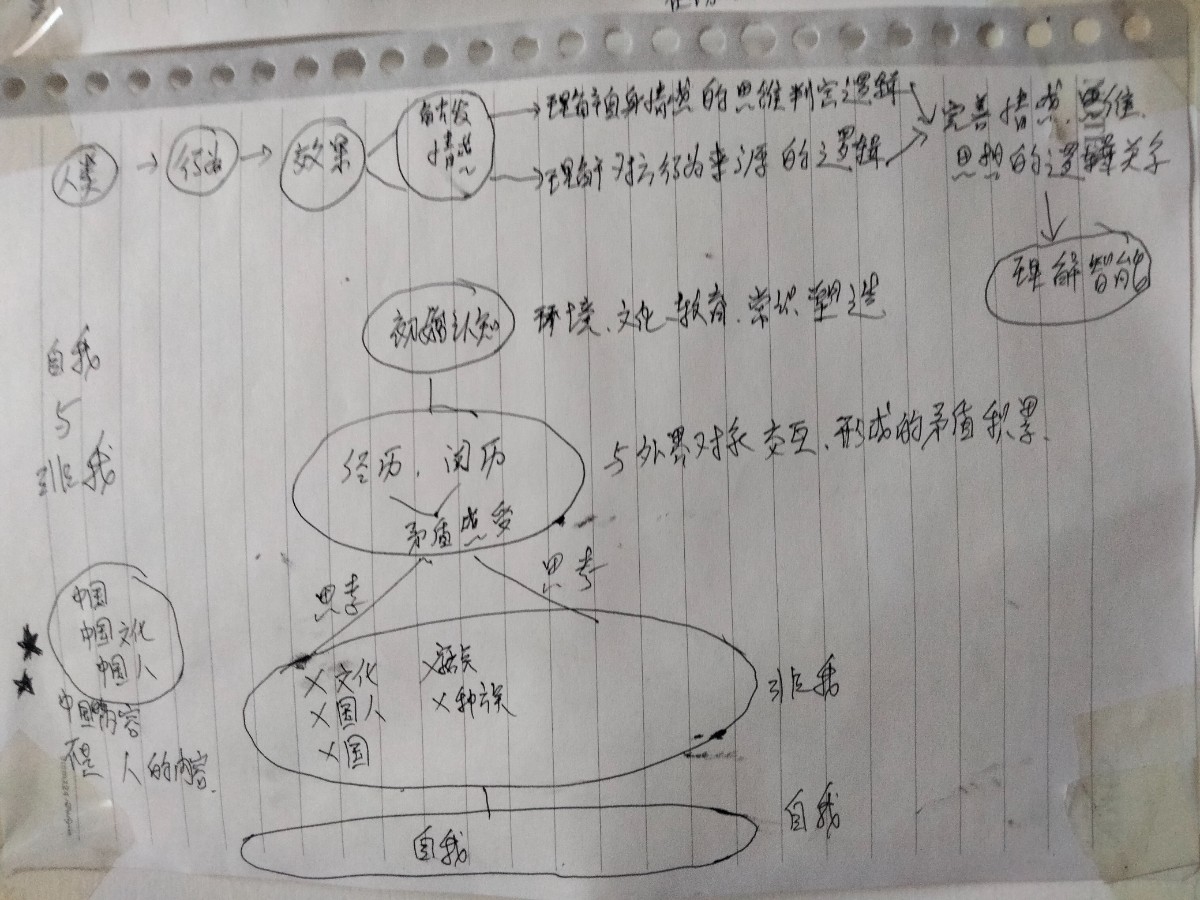 人类 → 行为 → 效果
情感
→理解自身情感的思维判定逻辑
→理解对方行为来源的逻辑
完善情感、思维、
思想的逻辑关系
理解智能
初始认知 环境、文化、教育、常识塑造
自我
与
非我
经历、阅历
矛盾感受
与外界对象交互、形成的矛盾积累.
思考
思考
中国
中国文化
中国人
中国 内容
不是 人的内容.
X文化
X国人
X国
X
X种族
非我
自我
自我